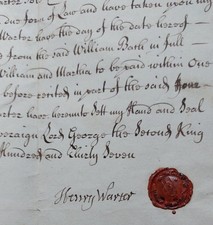 due form of Law and have taken upon my
Warter have the day of the date hereof
from the said William Bath in full
William and Martha to be paid within One
before recited in part of the said
Warter have hereunto Sett my Hand and Seal
Sovereign Lord George the Second King
Hundred and thirty Seven
Henry Warter